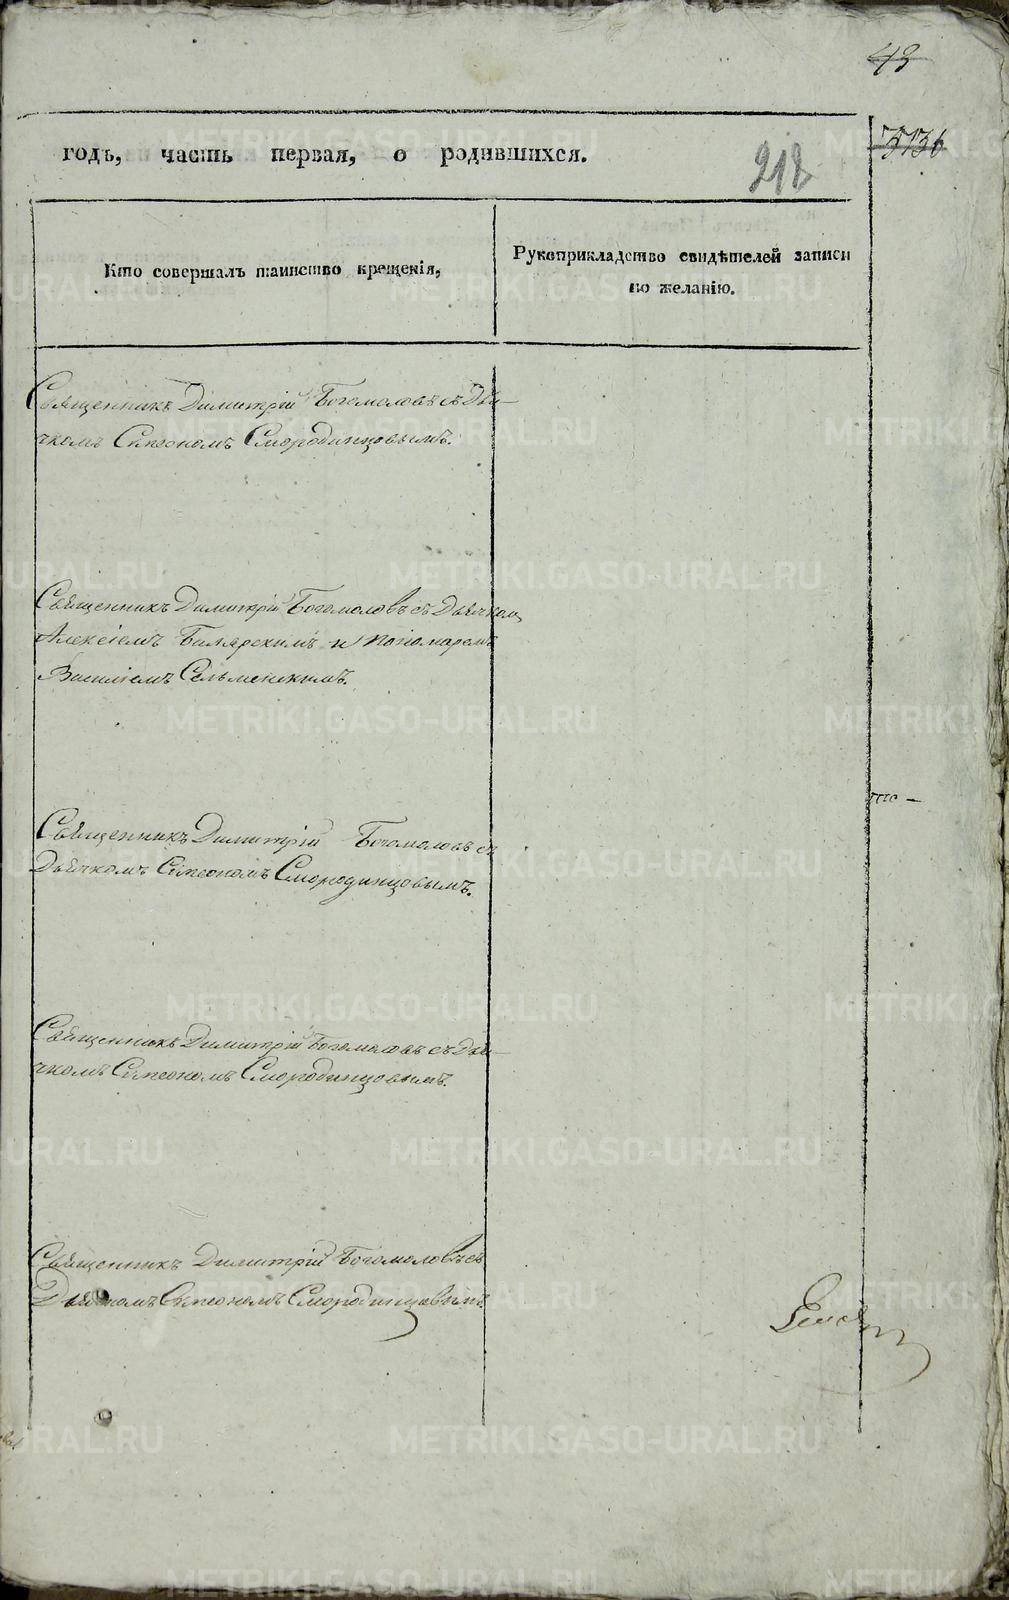 43
годъ, часть первая, о родившихся.
5136
212
Кто совершалъ таинство крещенія,
Рукоприкладство свидѣтелей записи
по желанію.
Священникъ Димитрій Богомоловъ съ Дья-
чкомъ Симеономъ Смородинцовымъ.
Священникъ Димитрій Богомоловъ съ Дьячком
Алексіемъ Бимярскимъ и пономаремъ
Василіемъ Сельменскимъ.
Священникъ Димитрій Богомоловъ съ
Дьячкомъ Симеономъ Смородинцовымъ.
Священникъ Димитрій Богомоловъ съ Дья-
чкомъ Симеономъ Смородинцовымъ.
Священникъ Димитрій Богомоловъ съ
Дьячкомъ Симеономъ Смородинцовымъ.
METRIKI.GASO-URAL.RU